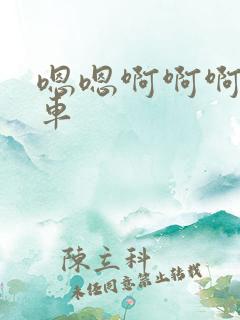 嗯嗯啊啊啊
車
陳立科
未经同意禁止转载